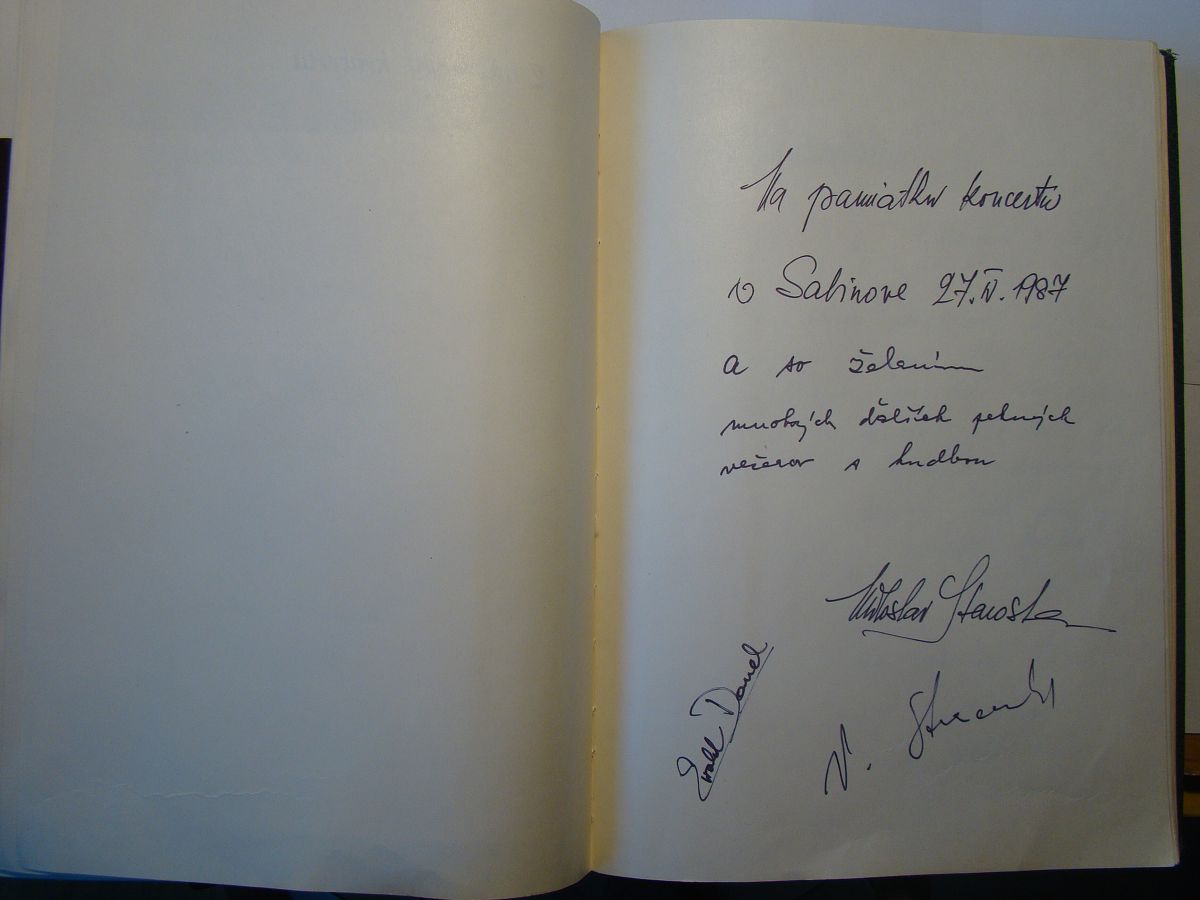 Na pamiatku koncertu
v Sabinove 27. IV. 1987
a so želaním
mnohých ďalších pekných
večerov s hudbou
Miloslav Starosta
Ewald Danel
V.